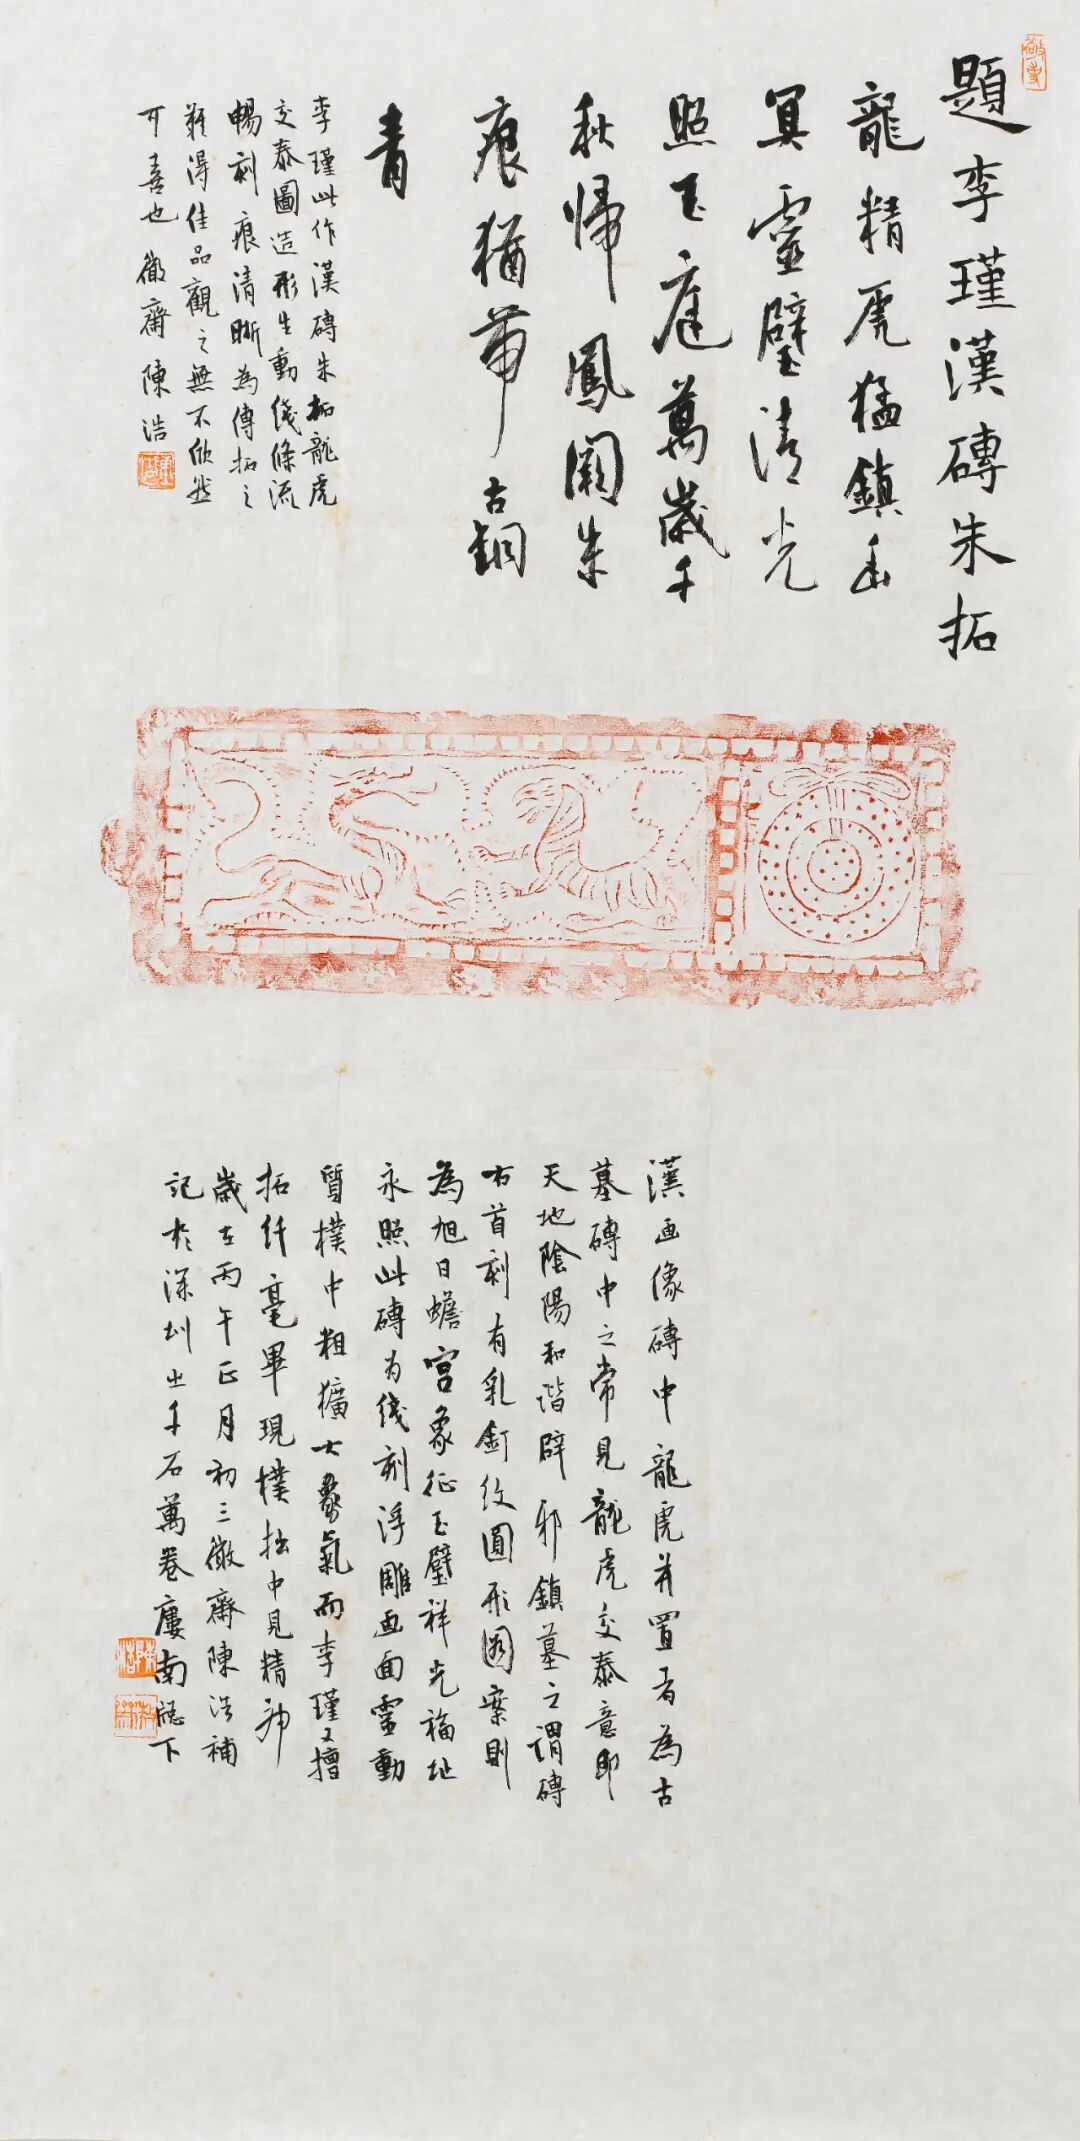 題李瑾漢磚朱拓
龍精虎猛鎮幽
冥靈璧清光
照玉庭萬歲千
秋歸鳳闕朱
痕猶帶古銅
青
李瑾此作漢磚朱拓龍虎
交泰圖造形生動綫條流
暢刻痕清晰為傳拓之
難得佳品觀之無不欣然
可喜也徽齋陳浩
漢画像磚中龍虎并置者為古
墓磚中之常見龍虎交泰意即
天地陰陽和諧辟邪鎮墓之謂磚
右首刻有乳釘紋圓形圖案則
為旭日蟾宮象征玉璧祥光福址
永照此磚為綫刻浮雕画面靈動
質樸中粗獷大氣象而李瑾又擅
拓纤毫畢現樸拙中見精神
歲在丙午正月初三徽齋陳浩補
記於深圳出千石萬卷廔南窗下